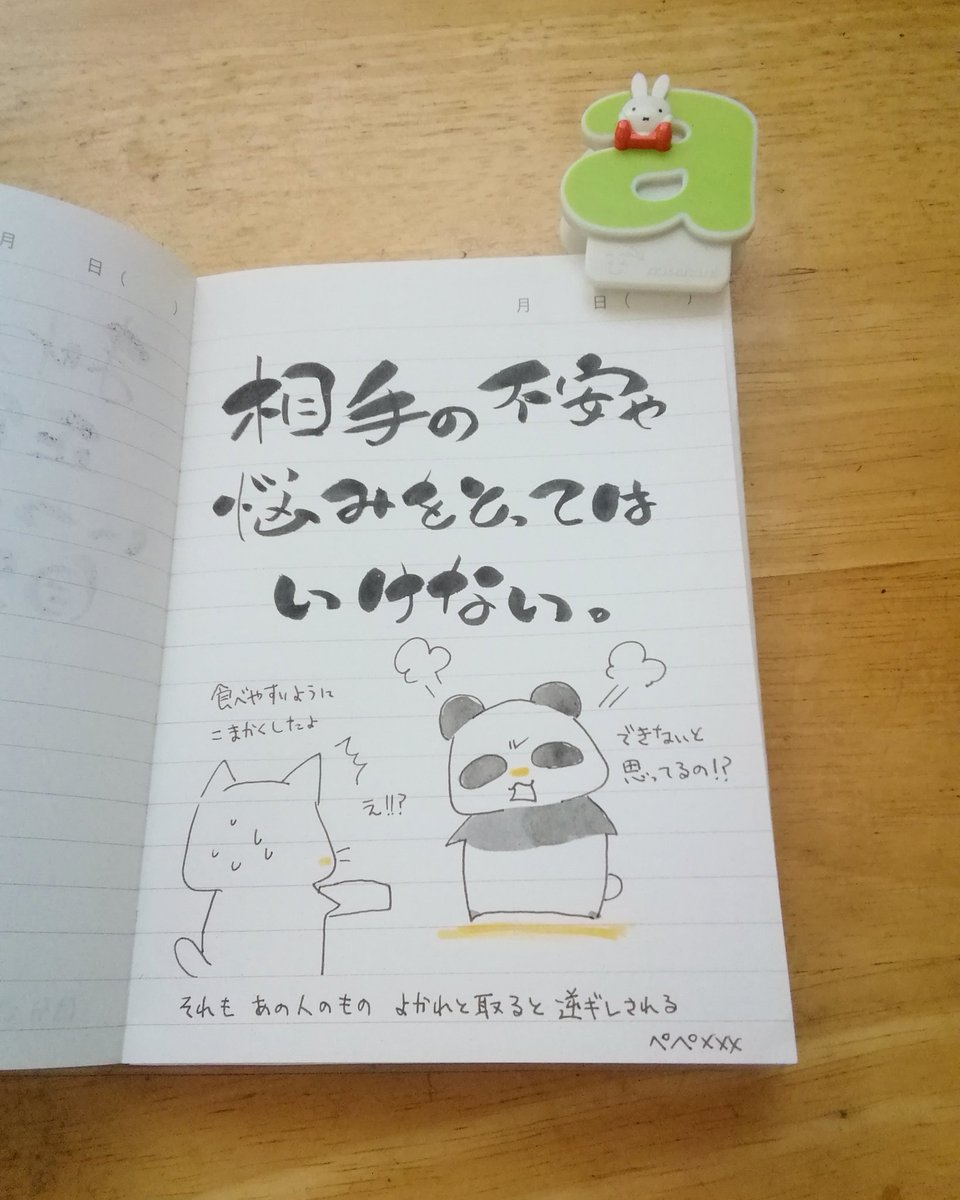 月
日 (
)
月 日 ( )
相手の不安や
悩みをとっては
いけない。
食べやすいように
こまかくしたよ
え!!?
できないと
思ってるの!?
それも あの人のもの よかれと取ると 逆ギレされる
ペペメメメ
a